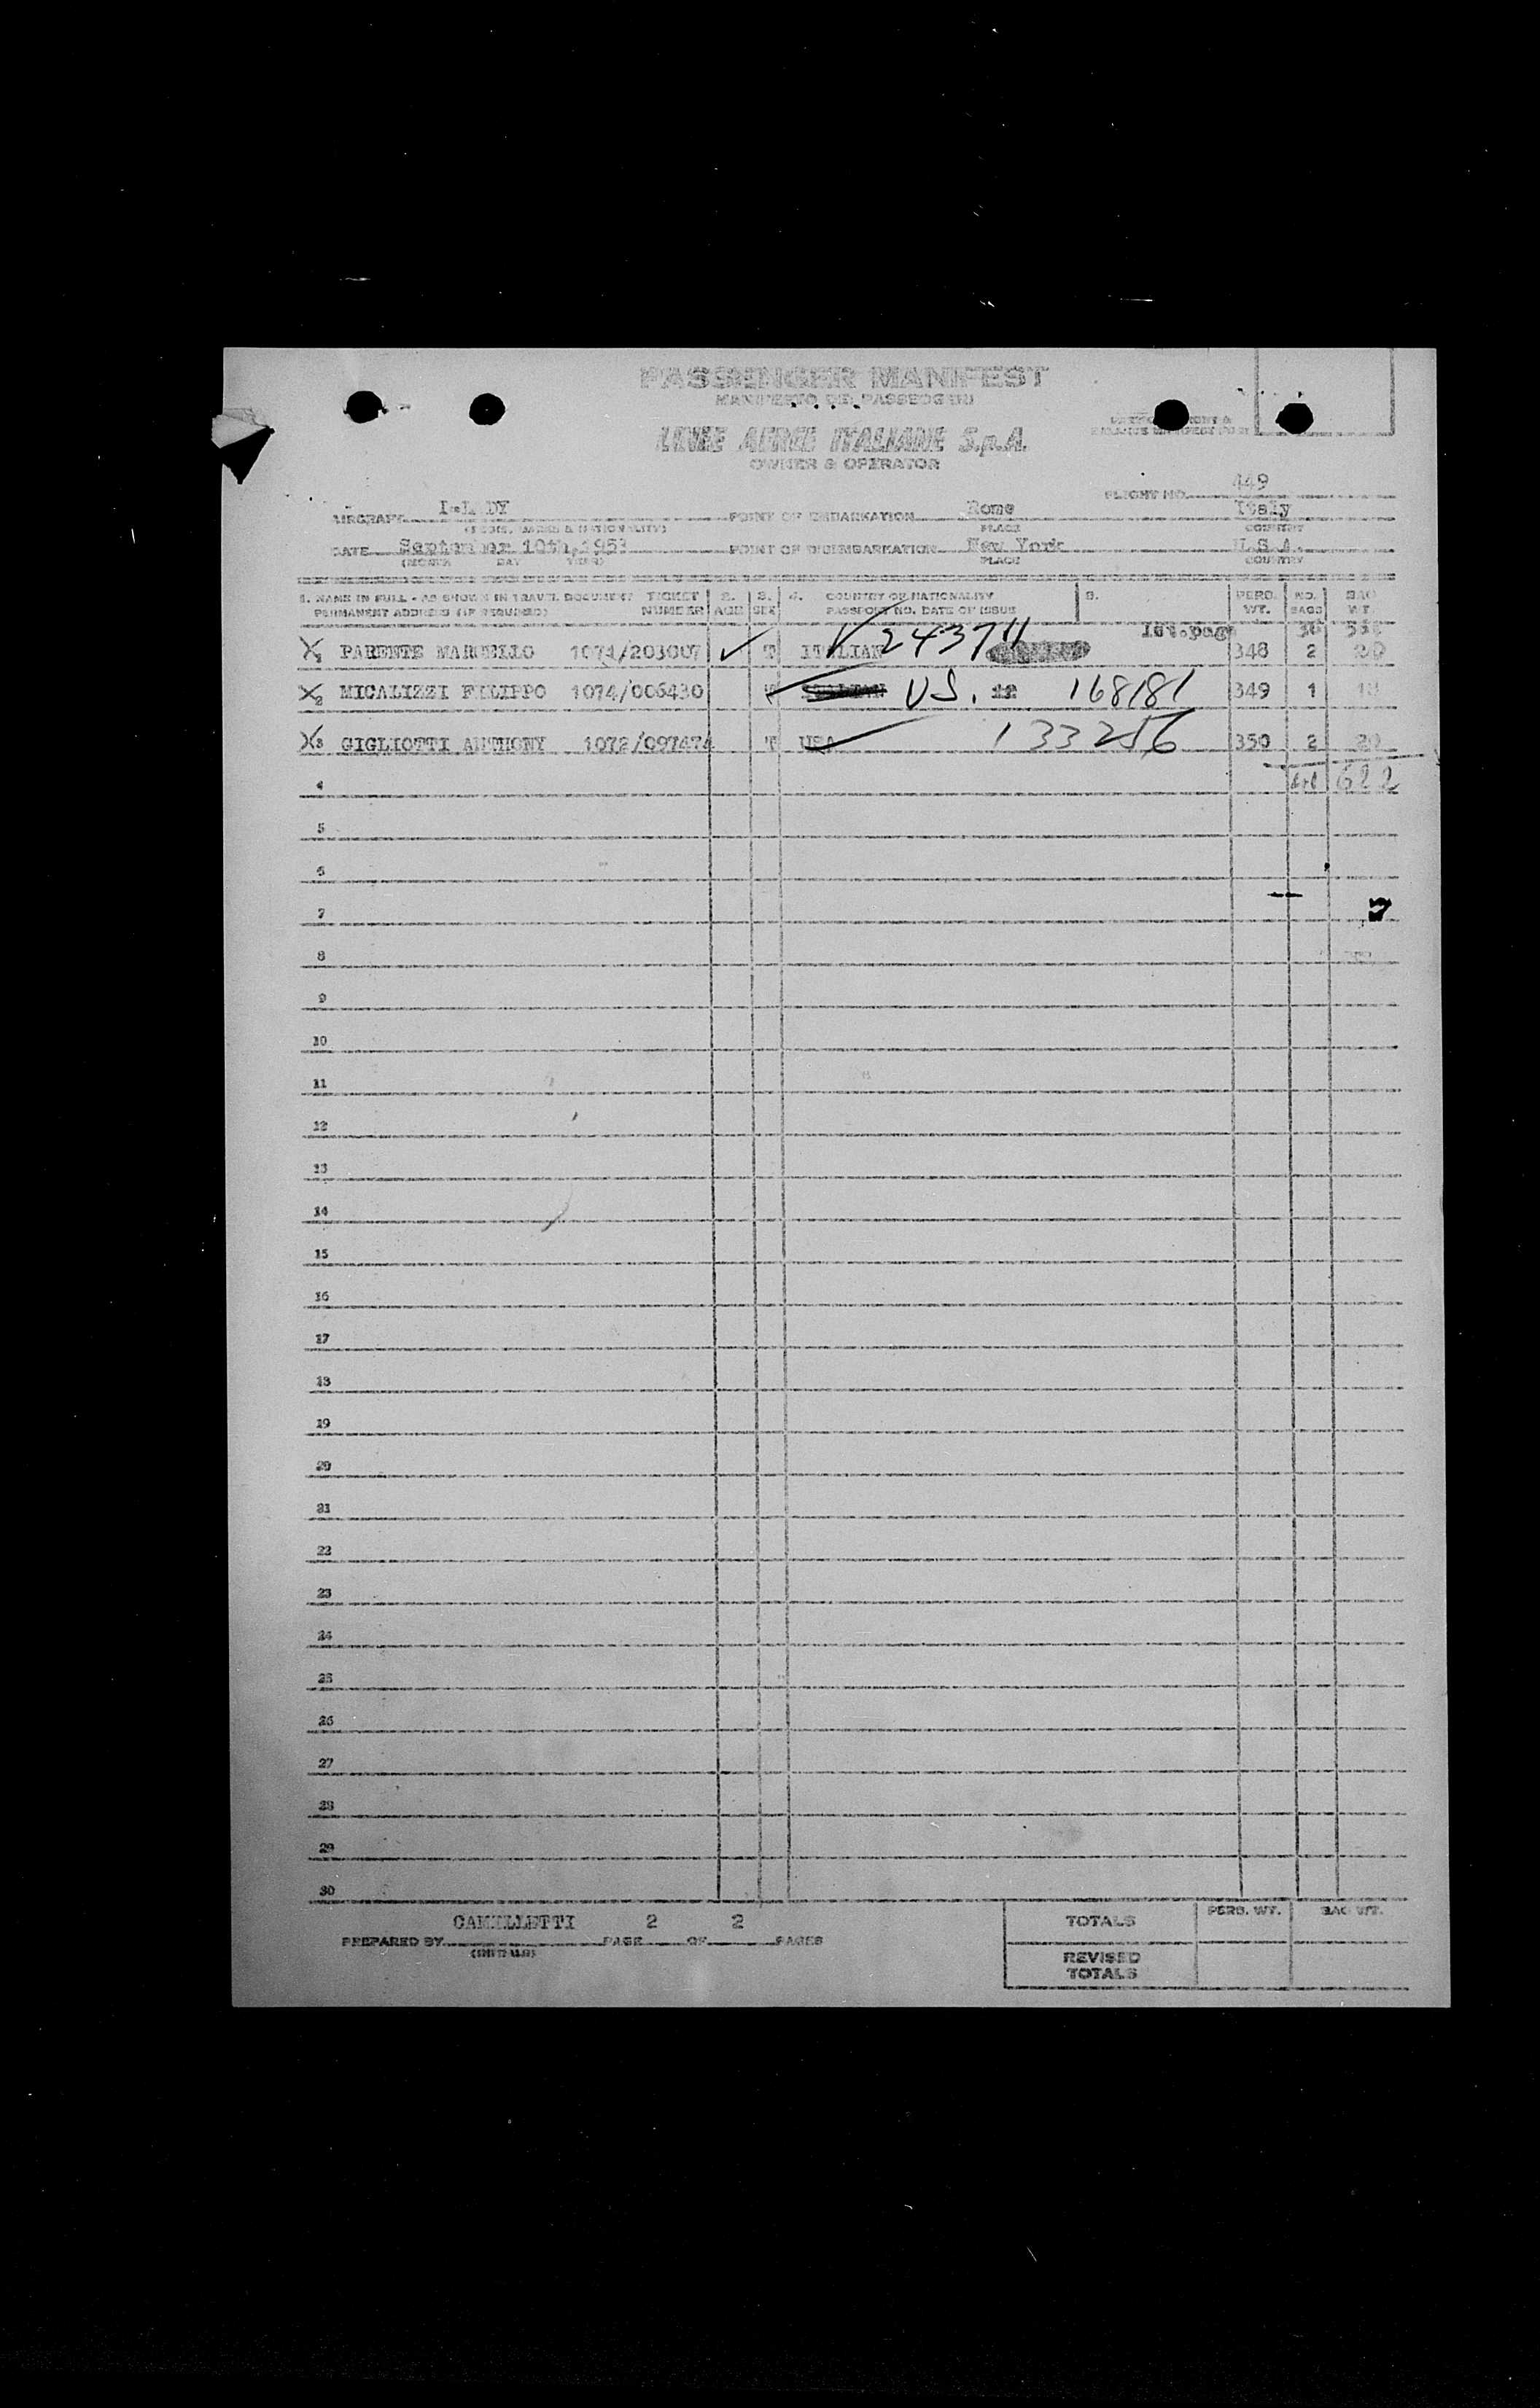 PASSENGER MANIFEST
MANIFESTO DEI PASSEGGERI
LINEE AEREE ITALIANE S.p.A.
OWNER & OPERATOR
FLIGHT NO. 449
AIRCRAFT I-L DY POINT OF EMBARKATION Rome Italy
PLACE COUNTRY
DATE September 10th, 1953 POINT OF DISEMBARKATION New York U.S.A.
(MONTH DAY YEAR) PLACE COUNTRY
1. NAME IN FULL - AS SHOWN IN TRAVEL DOCUMENT TICKET 2. 3. 4. COUNTRY OF NATIONALITY 5. PERS. NO. BAG
PERMANENT ADDRESS (IF REQUIRED) NUMBER AGE SEX PASSPORT NO. DATE OF ISSUE WT. BAGS WT.
1 PARENTE MARCELLO 1071/203007 T ITALIAN 243711 348 2 20
2 MICALIZZI FILIPPO 1074/006430 US. 168181 349 1
3 GIGLIOTTI ANTHONY 1072/097474 T USA 133256 350 2 20
4 622
5
6
7
8
9
10
11
12
13
14
15
16
17
18
19
20
21
22
23
24
25
26
27
28
29
30
PREPARED BY CAMILLETTI PAGE 2 OF 2 PAGES
(INITIALS)
TOTALS PERS. WT. BAG WT.
REVISED
TOTALS